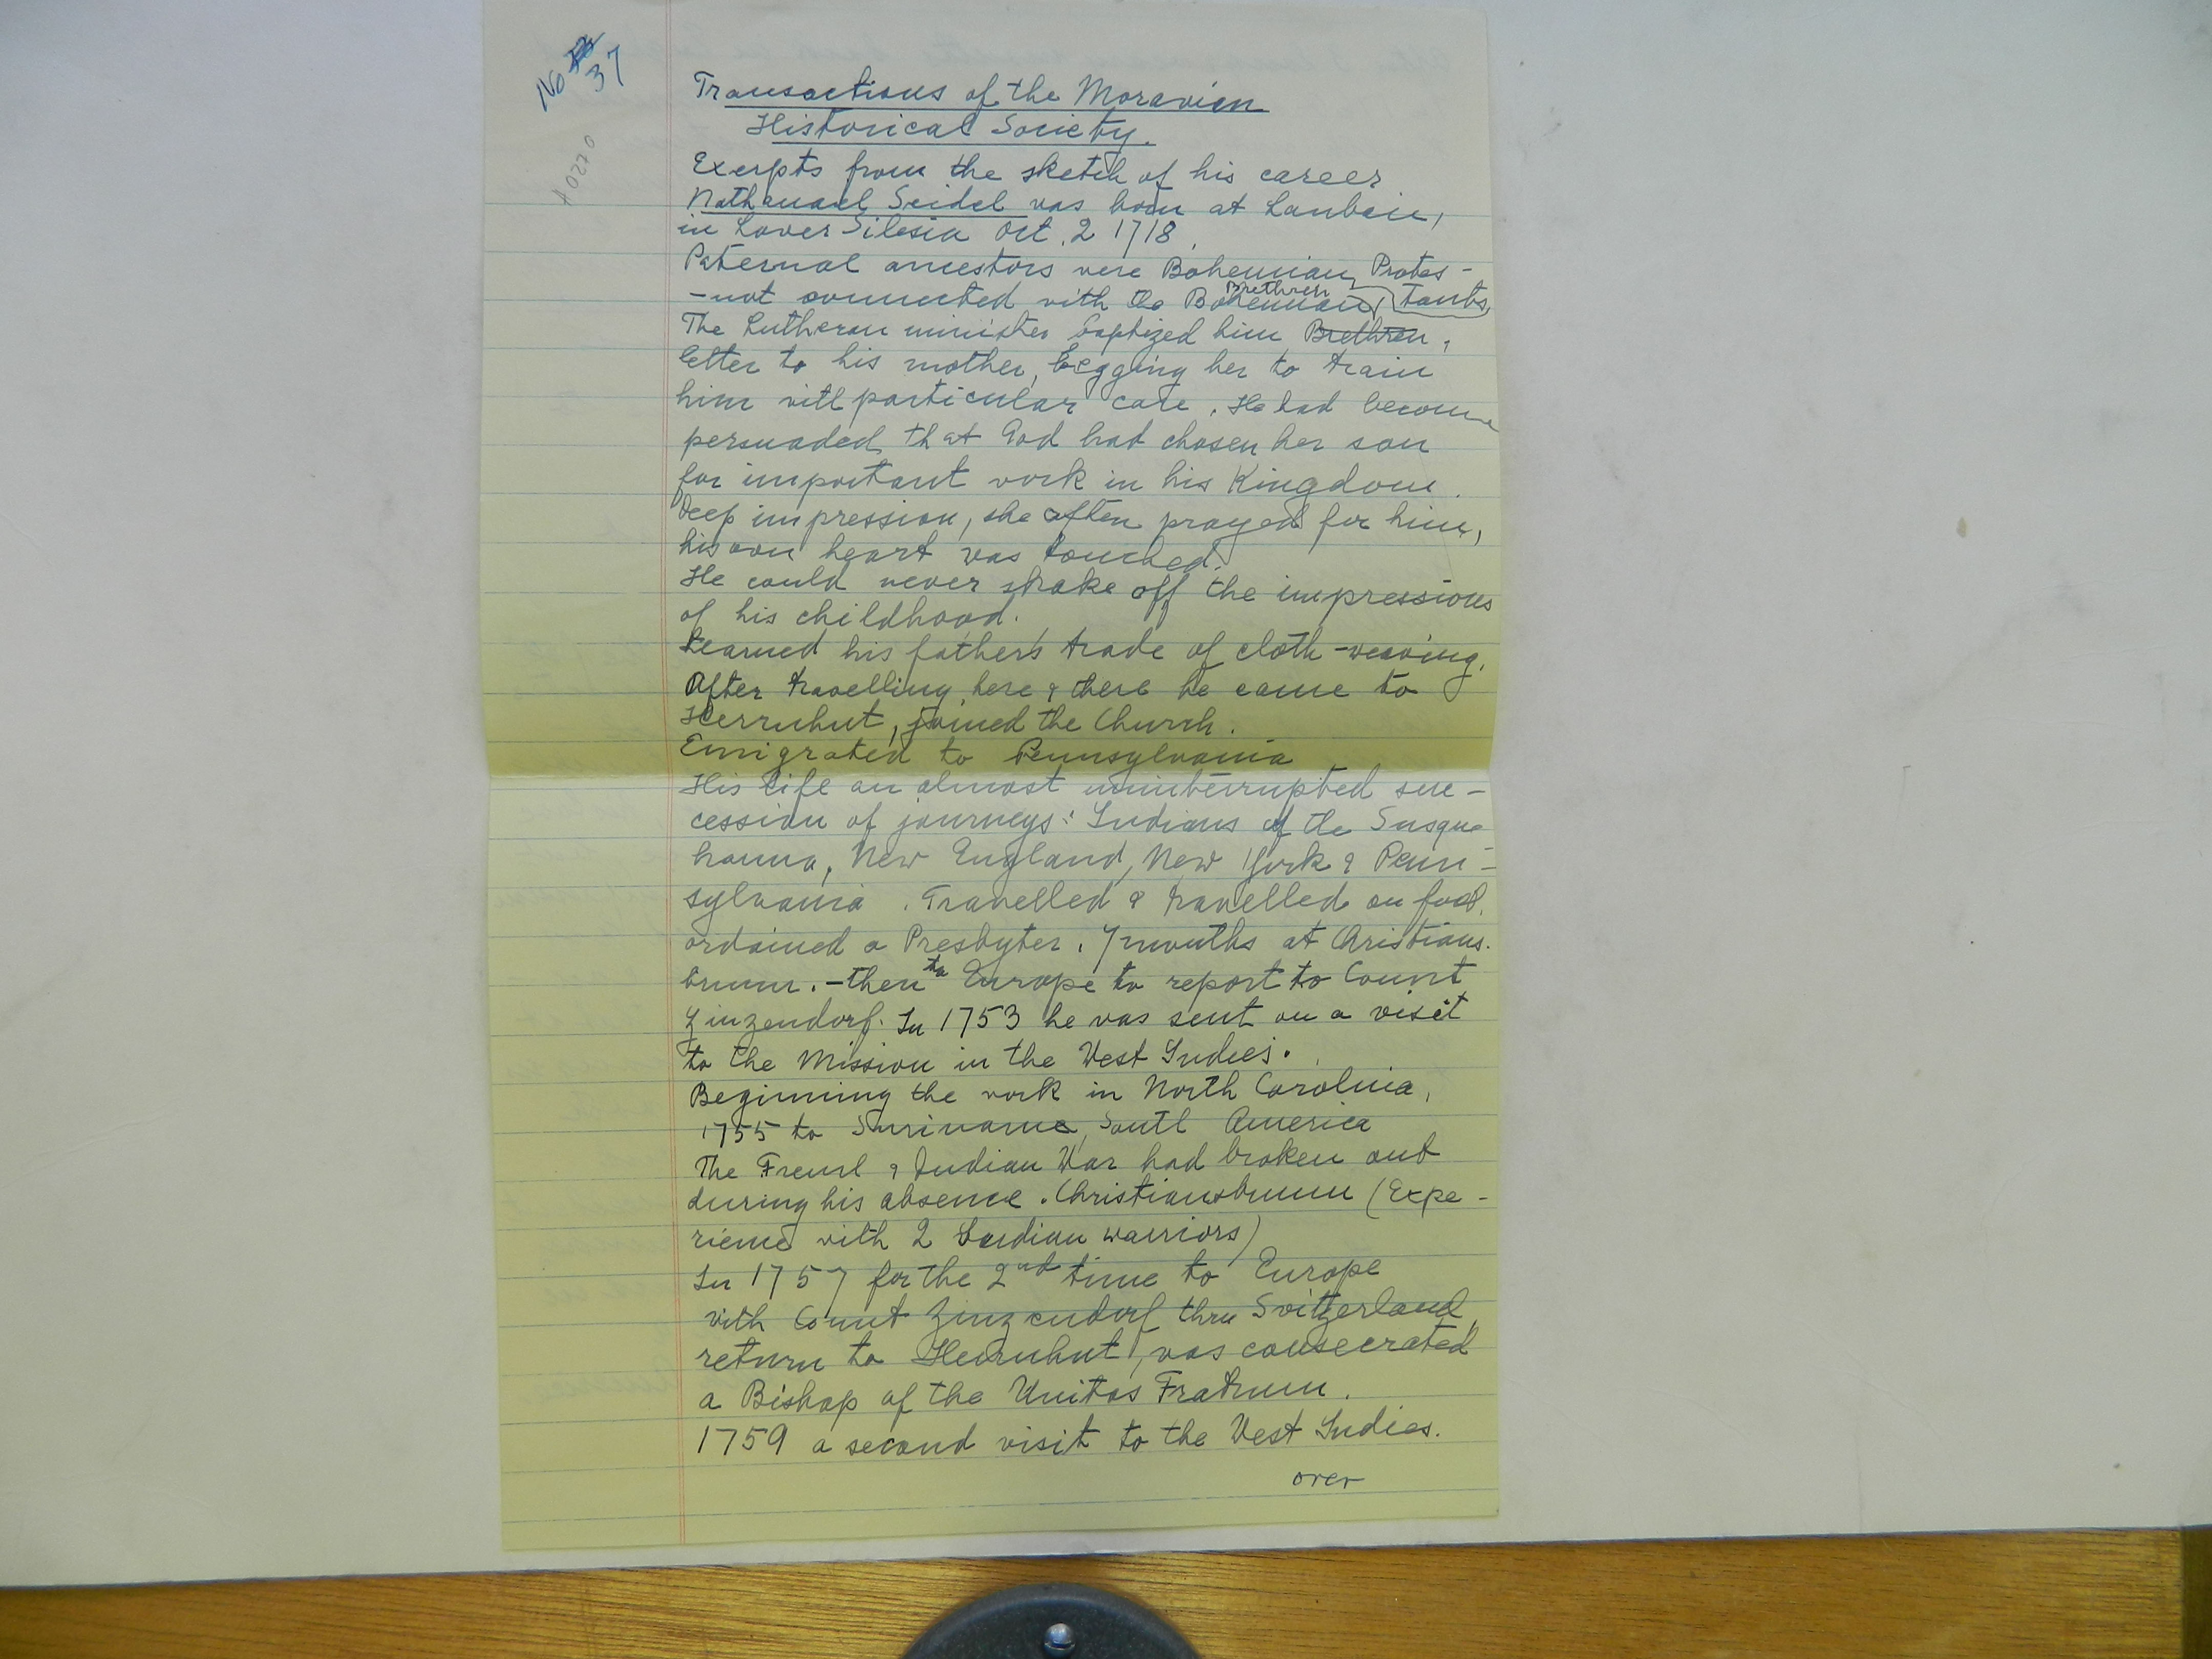 No 37
A0220
Transactions of the Moravian
Historical Society.
Exerpts from the sketch of his career
Nathanael Seidel was born at Lauban,
in Lower Silesia Oct. 2 1718.
Paternal ancestors were Bohemian Protes-
tants
-not connected with the Bohemian Brethren
The Lutheran minister baptized him Brethren,
letter to his mother, begging her to train
him with particular care. He had become
persuaded that God had chosen her son
for important work in his Kingdom.
Deep impression, she often prayed for him,
his own heart was touched.
He could never shake off the impressions
of his childhood.
Learned his father's trade of cloth-weaving.
After travelling here & there he came to
Herrnhut, joined the Church.
Emigrated to Pennsylvania
His life an almost uninterrupted suc-
cession of journeys: Indians of the Susque
hanna, New England, New York & Penn-
sylvania. Travelled & travelled on foot.
ordained a Presbyter. 7 months at Christians.
brunn. - then to Europe to report to Count
Zinzendorf. In 1753 he was sent on a visit
to the Mission in the West Indies.
Beginning the work in North Carolina,
1755 to Suriname, South America
The French & Indian War had broken out
during his absence. Christiansbrunn (Expe-
rience with 2 Indian warriors)
In 1757 for the 2nd time to Europe
with Count Zinzendorf thru Switzerland,
return to Herrnhut, was consecrated
a Bishop of the Unitas Fratrum.
1759 a second visit to the West Indies.
over